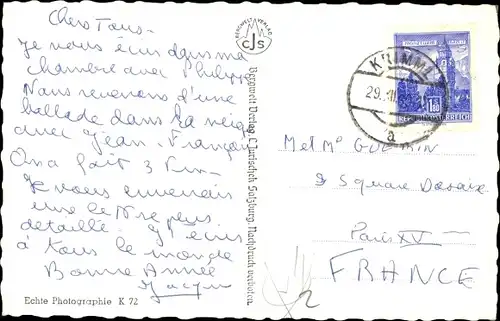 Chers Tous -
Je vous écris depuis ma
chambre avec Philippe
Nous revenons d'une
ballade dans la neige
avec Jean François
On a fait 3 Km -
Je vous
une plus
détaillé J'écris
à tous le monde
Bonne Année
Jacques
Echte Photographie K 72
BERGWELT-VERLAG
CJS
Bergwelt Verlag, C. Jurischek Salzburg. Nachdruck verboten.
KRIMML
29. XII.
a
1.80
REPUBLIK ÖSTERREICH
M et Mme GUERIN
2 Square Desaix
Paris XV -
FRANCE